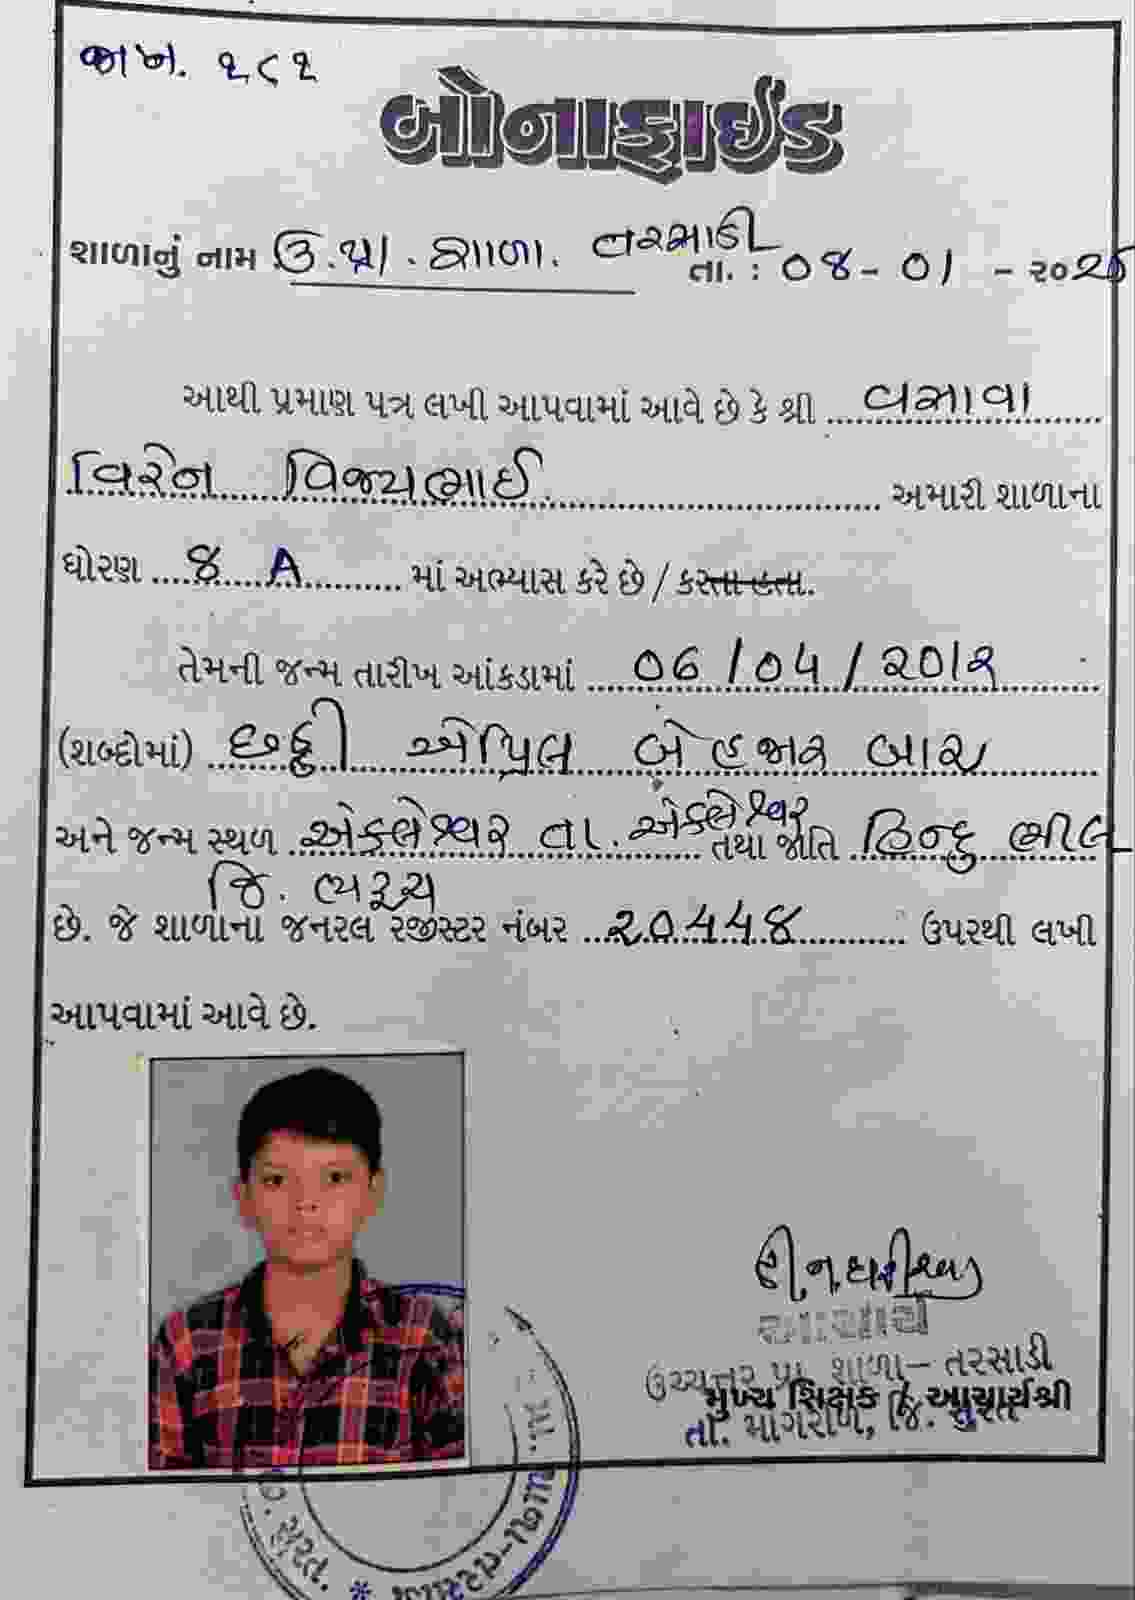 જા.ખ. ૨૮૨
બોનાફાઈડ
શાળાનું નામ ઉ.પ્રા. શાળા. તરસાડી
તા. : ૦૪- ૦1 - ૨૦૨૫
આથી પ્રમાણ પત્ર લખી આપવામાં આવે છે કે શ્રી વસાવા
વિરેન વિજયભાઈ અમારી શાળાના
ધોરણ ૪ A માં અભ્યાસ કરે છે / કરતા હતા.
તેમની જન્મ તારીખ આંકડામાં 06/04/૨૦1૨
(શબ્દોમાં) છઠ્ઠી એપ્રિલ બે હજાર બાર
અને જન્મ સ્થળ અંકલેશ્વર તા. અંકલેશ્વર તથા જાતિ હિન્દુ ભીલ
જિ. ભરૂચ
છે. જે શાળાના જનરલ રજીસ્ટર નંબર ૨૦૪૪૪ ઉપરથી લખી
આપવામાં આવે છે.
આચાર્ય
ઉચ્ચત્તર પ્રા. શાળા– તરસાડી
મુખ્ય શિક્ષક / આચાર્યશ્રી
તા. માંગરોળ, જિ. સુરત
સુરત.